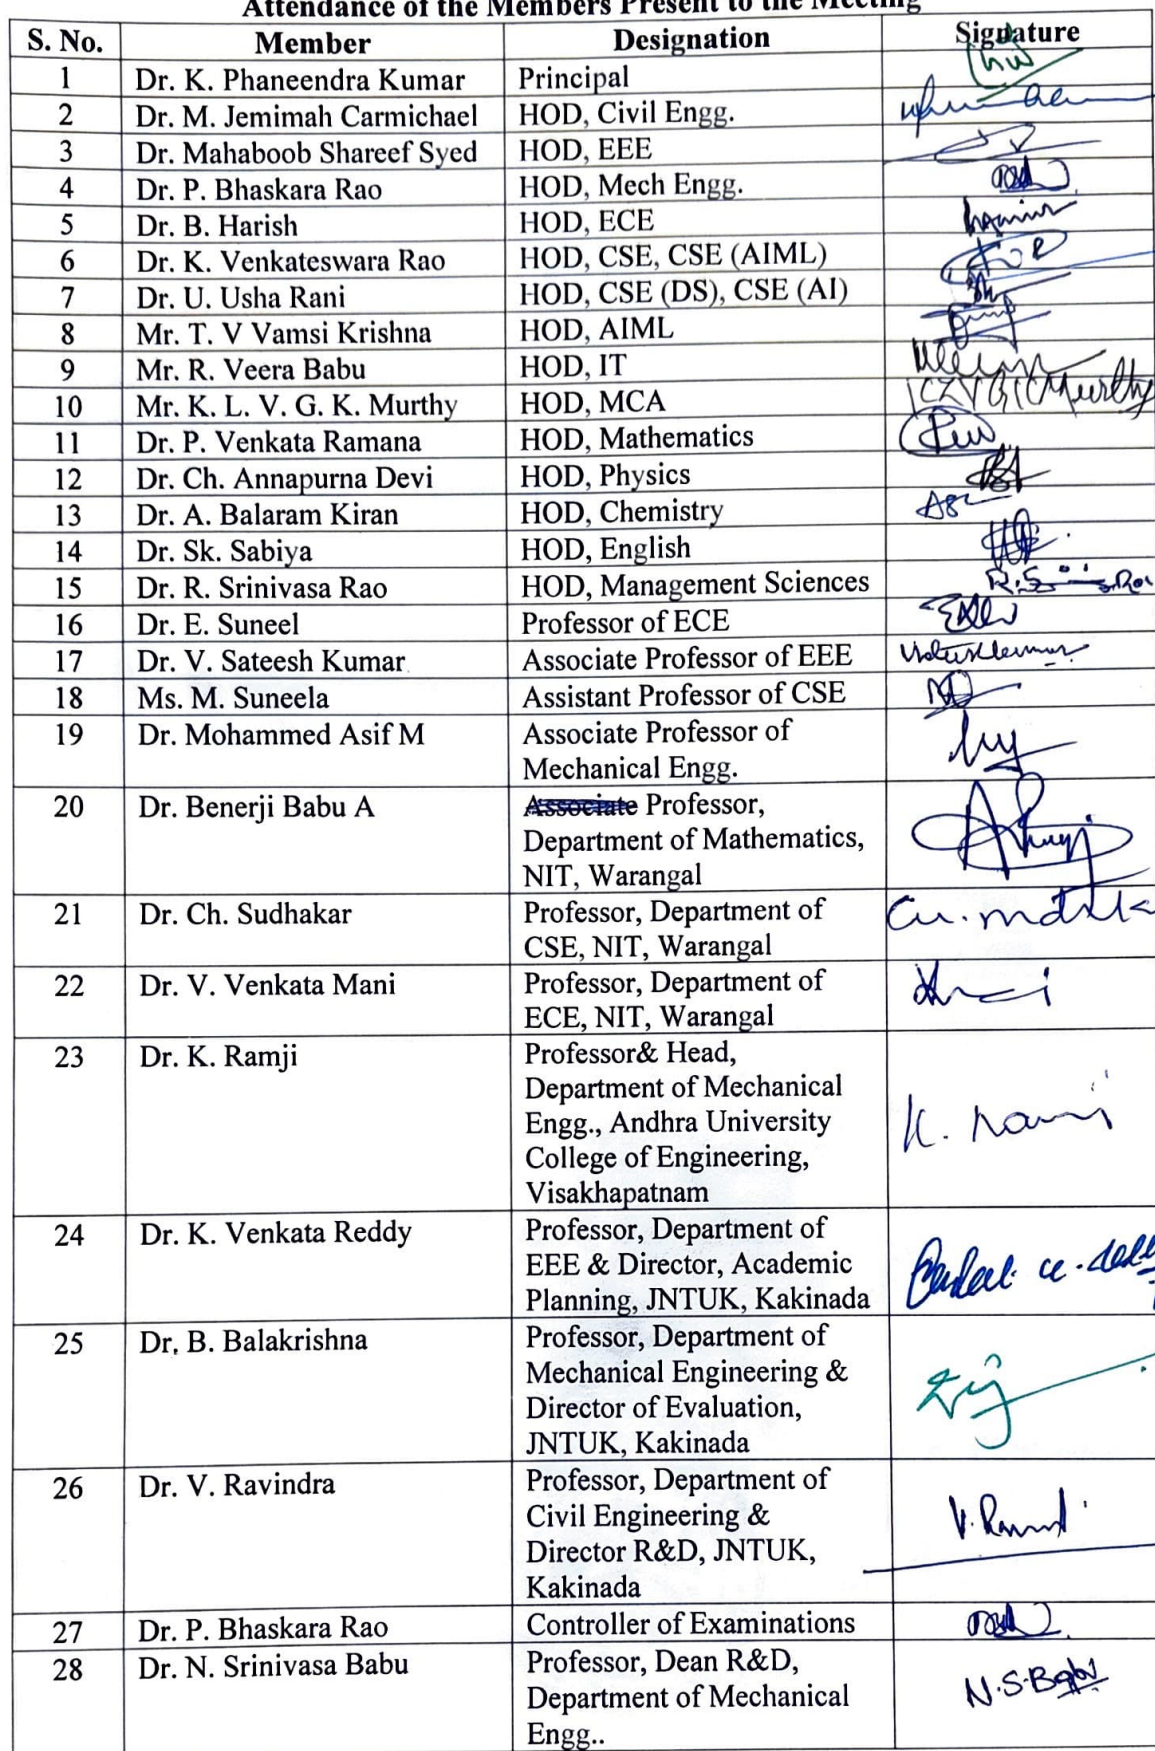 Attendance of the Members Present to the Meeting
S. No. Member Designation Signature
1 Dr. K. Phaneendra Kumar Principal
2 Dr. M. Jemimah Carmichael HOD, Civil Engg.
3 Dr. Mahaboob Shareef Syed HOD, EEE
4 Dr. P. Bhaskara Rao HOD, Mech Engg.
5 Dr. B. Harish HOD, ECE
6 Dr. K. Venkateswara Rao HOD, CSE, CSE (AIML)
7 Dr. U. Usha Rani HOD, CSE (DS), CSE (AI)
8 Mr. T. V Vamsi Krishna HOD, AIML
9 Mr. R. Veera Babu HOD, IT
10 Mr. K. L. V. G. K. Murthy HOD, MCA KLVGKMurthy
11 Dr. P. Venkata Ramana HOD, Mathematics
12 Dr. Ch. Annapurna Devi HOD, Physics
13 Dr. A. Balaram Kiran HOD, Chemistry
14 Dr. Sk. Sabiya HOD, English
15 Dr. R. Srinivasa Rao HOD, Management Sciences
16 Dr. E. Suneel Professor of ECE
17 Dr. V. Sateesh Kumar Associate Professor of EEE
18 Ms. M. Suneela Assistant Professor of CSE
19 Dr. Mohammed Asif M Associate Professor of
Mechanical Engg.
20 Dr. Benerji Babu A Associate Professor,
Department of Mathematics,
NIT, Warangal
21 Dr. Ch. Sudhakar Professor, Department of
CSE, NIT, Warangal
22 Dr. V. Venkata Mani Professor, Department of
ECE, NIT, Warangal
23 Dr. K. Ramji Professor& Head,
Department of Mechanical
Engg., Andhra University
College of Engineering,
Visakhapatnam
24 Dr. K. Venkata Reddy Professor, Department of
EEE & Director, Academic
Planning, JNTUK, Kakinada
25 Dr, B. Balakrishna Professor, Department of
Mechanical Engineering &
Director of Evaluation,
JNTUK, Kakinada
26 Dr. V. Ravindra Professor, Department of
Civil Engineering &
Director R&D, JNTUK,
Kakinada
27 Dr. P. Bhaskara Rao Controller of Examinations
28 Dr. N. Srinivasa Babu Professor, Dean R&D, N.S.Babu
Department of Mechanical
Engg..